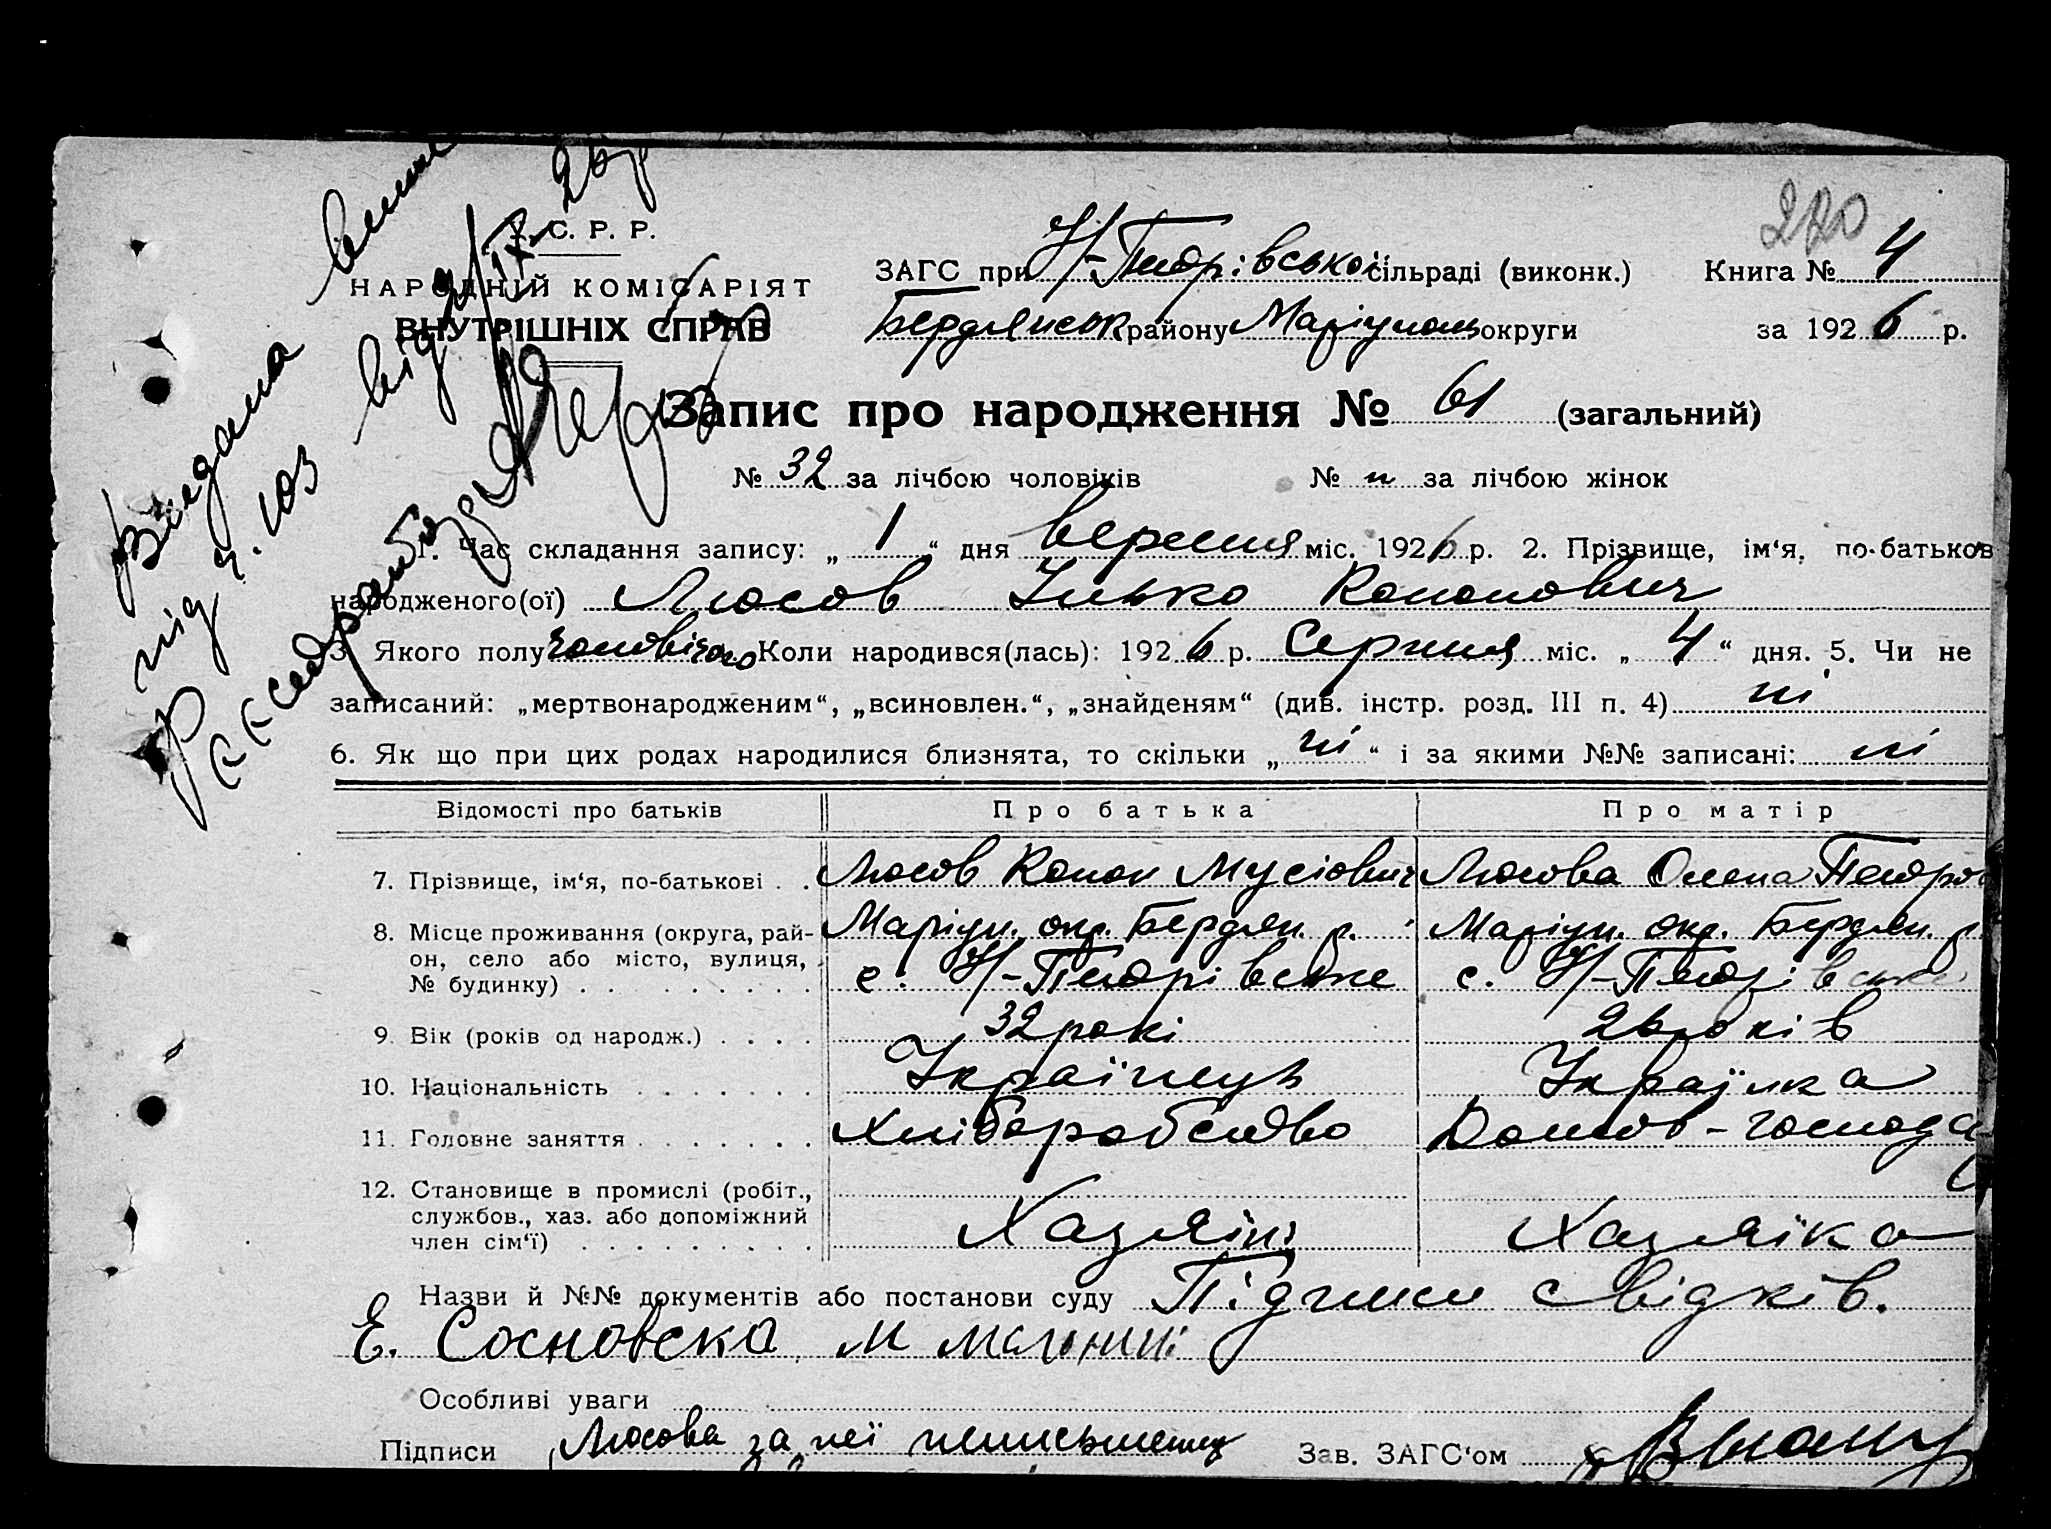 Видана
під ч. 103 від
У. С. Р. Р.
НАРОДНІЙ КОМІСАРІЯТ
ВНУТРІШНІХ СПРАВ
270
ЗАГС при Н-Петрівській сільраді (виконк.) Книга № 4
Бердянськ району Маріупольс округи за 1926 р.
Запис про народження № 61 (загальний)
№ 32 за лічбою чоловіків № п за лічбою жінок
1. Час складання запису: „ 1 “ дня вересня міс. 1926 р. 2. Прізвище, ім‘я, по-батьков
народженого(ої) Люсов Ілько Кононович
3. Якого полу чоловічого Коли народився(лась): 1926 р. Серпня міс. „ 4 “ дня. 5. Чи не
записаний: „мертвонародженим“, „всиновлен.“, „знайденям“ (див. інстр. розд. III п. 4) ні
6. Як що при цих родах народилися близнята, то скільки „ ні “ і за якими №№ записані: ні
Відомості про батьків Про батька Про матір
7. Прізвище, ім‘я, по-батькові . . Люсов Конон Мусіович Люсова Олена Петро
8. Місце проживання (округа, рай- Маріуп. окр. Бердян. р. Маріуп. окр. Бердян. р.
он, село або місто, вулиця, с. Н-Петрівське с. Н-Петрівське
№ будинку) . . . . . . . . .
9. Вік (років од народж.) . . . . 32 рокі 26 років
10. Національність . . . . . . . Українець Українка
11. Головне заняття . . . . . . . Хліборобство Домов-господа
12. Становище в промислі (робіт.,
службов., хаз. або допоміжний Хазяїн Хазяїка
член сім‘ї) . . . . . . . . .
Назви й №№ документів або постанови суду Підписи свідків.
Е. Сосновска М
Особливі уваги
Підписи Люсова за неї Зав. ЗАГС‘ом